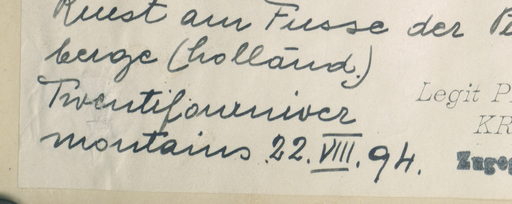 Kunst am Fusse der
berge (Holländ.)
Twentifouruiver
mountains 22. VIII. 94.
Legit P
KR
Zugeg